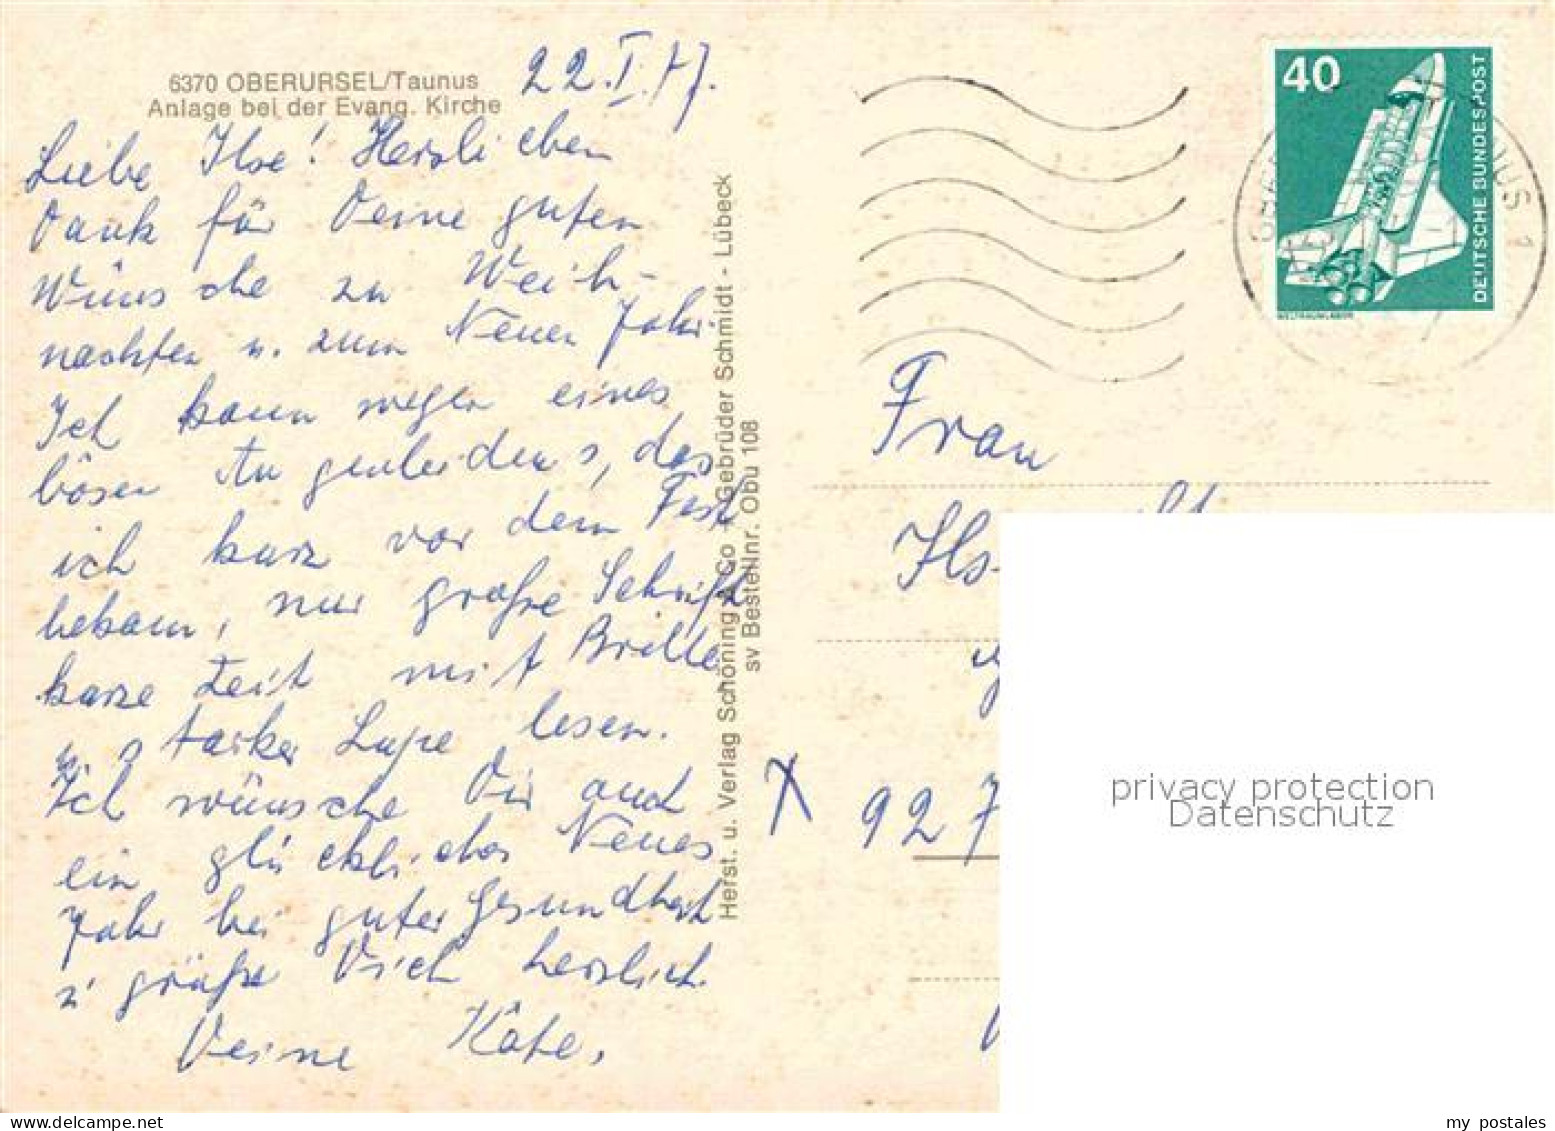 6370 OBERURSEL/Taunus
Anlage bei der Evang. Kirche
22.I.77.
Liebe Ilse! Herzlichen
Dank für Deine guten
Wünsche zu Weih-
nachten u. zum Neuen Jahr
Ich kann wegen eines
bösen Augenleidens, das
ich kurz vor dem Fest
bekam, nur große Schrift
kurze Zeit mit Brille
u. starker Lupe lesen.
Ich wünsche Dir auch
ein glückliches Neues
Jahr bei guter Gesundheit
u. grüße Dich herzlich.
Deine Käte.
Herst. u. Verlag Schöning & Co + Gebrüder Schmidt - Lübeck
sv Bestellnr. Obu 108
40
DEUTSCHE BUNDESPOST
WELTRAUMLABOR
Frau
Ils
X 927
privacy protection
Datenschutz
my postales